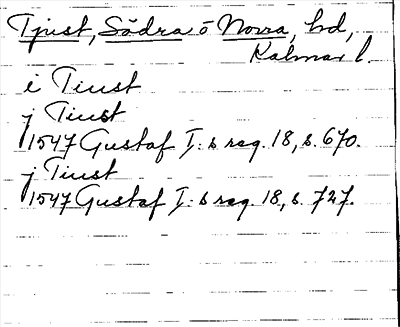 Tjust, Södra o Norra, hd,
Kalmar l.
i Tiust
j Tiust
1547 Gustaf I:s reg. 18, s. 670.
j Tiust
1547 Gustaf I:s reg. 18, s. 727.